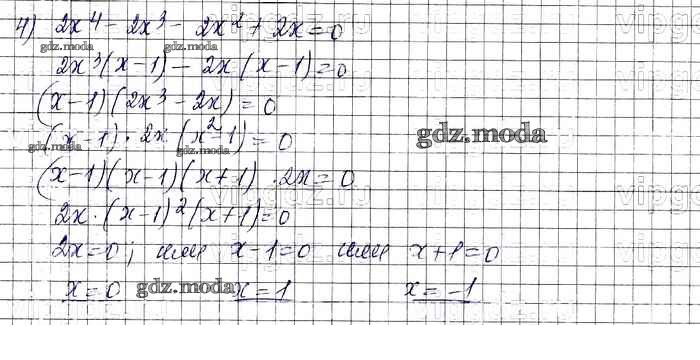 4) 2x⁴ - 2x³ - 2x² + 2x = 0
gdz.moda gdz.moda
2x³(x-1) - 2x(x-1) = 0
(x-1)(2x³ - 2x) = 0
(x-1) · 2x(x²-1) = 0
gdz.moda gdz.moda gdz.moda
(x-1)(x-1)(x+1) · 2x = 0
2x · (x-1)²(x+1) = 0
2x = 0; или x-1 = 0 или x+1 = 0
x = 0 gdz.moda x = 1 x = -1